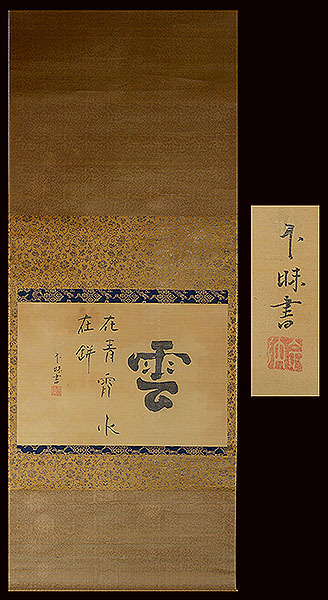 雲
在青霄水
在缾
不昧書
不昧書